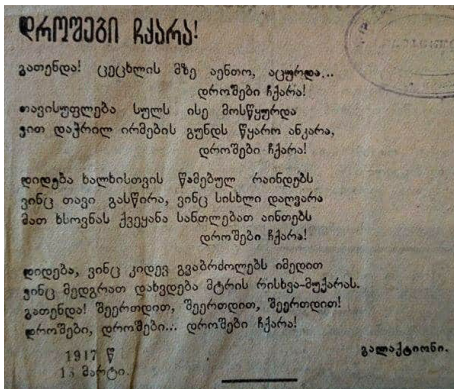 დროშები ჩქარა!
გათენდა! ცეცხლის მზე აენთო, აცურდა...
დროშები ჩქარა!
თავისუფლება სულს ისე მოსწყურდა
ვით დაჭრილ ირმების გუნდს წყარო ანკარა,
დროშები ჩქარა!
დიდება ხალხისთვის წამებულ რაინდებს
ვინც თავი გასწირა, ვინც სისხლი დაღვარა
მათ ხსოვნას ქვეყანა სანთლებათ აინთებს
დროშები ჩქარა!
დიდება, ვინც კიდევ გვაბრძოლებს იმედით
ვინც მედგრათ დახვდება მტრის რისხვა-მუქარას.
გათენდა! შეერთდით, შეერთდით, შეერთდით!
დროშები, დროშები... დროშები ჩქარა!
1917 წ
მარტი.
გალაქტიონი.